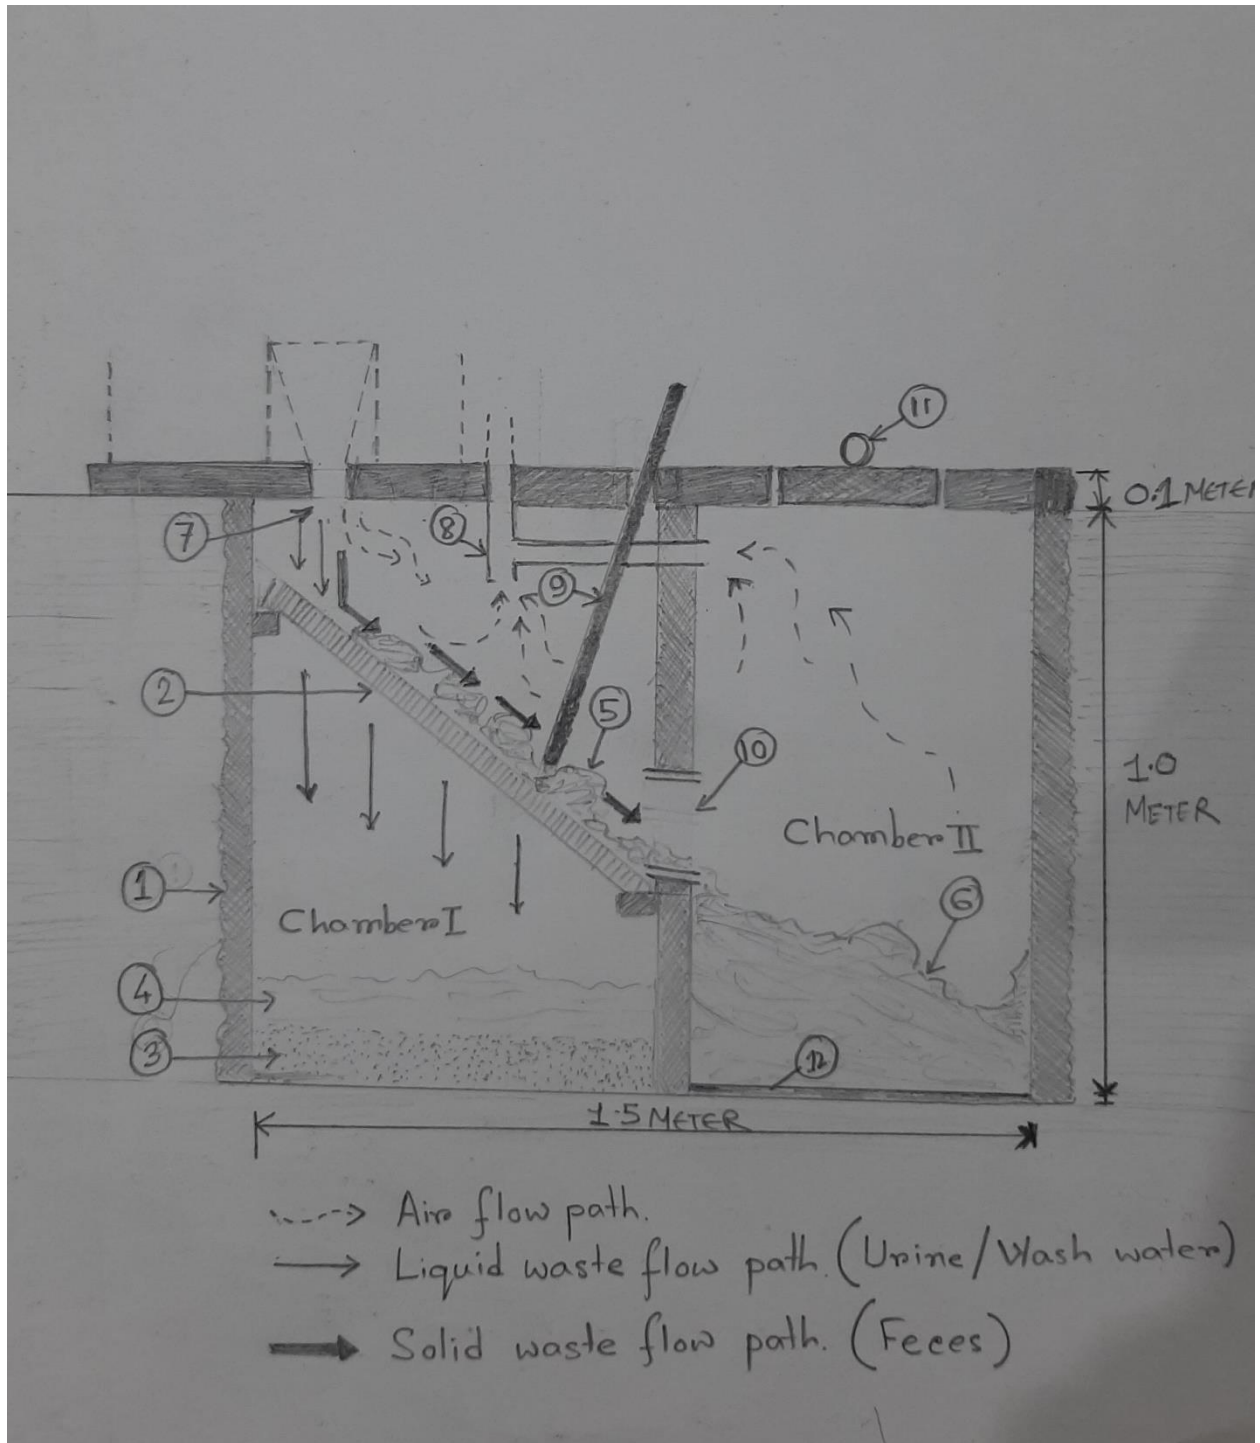 11
0.1 METER
7
8
9
2
5
10
1.0
METER
Chamber II
1
6
Chamber I
4
3
12
1.5 METER
Air flow path.
Liquid waste flow path. (Urine/Wash water)
Solid waste flow path. (Feces)